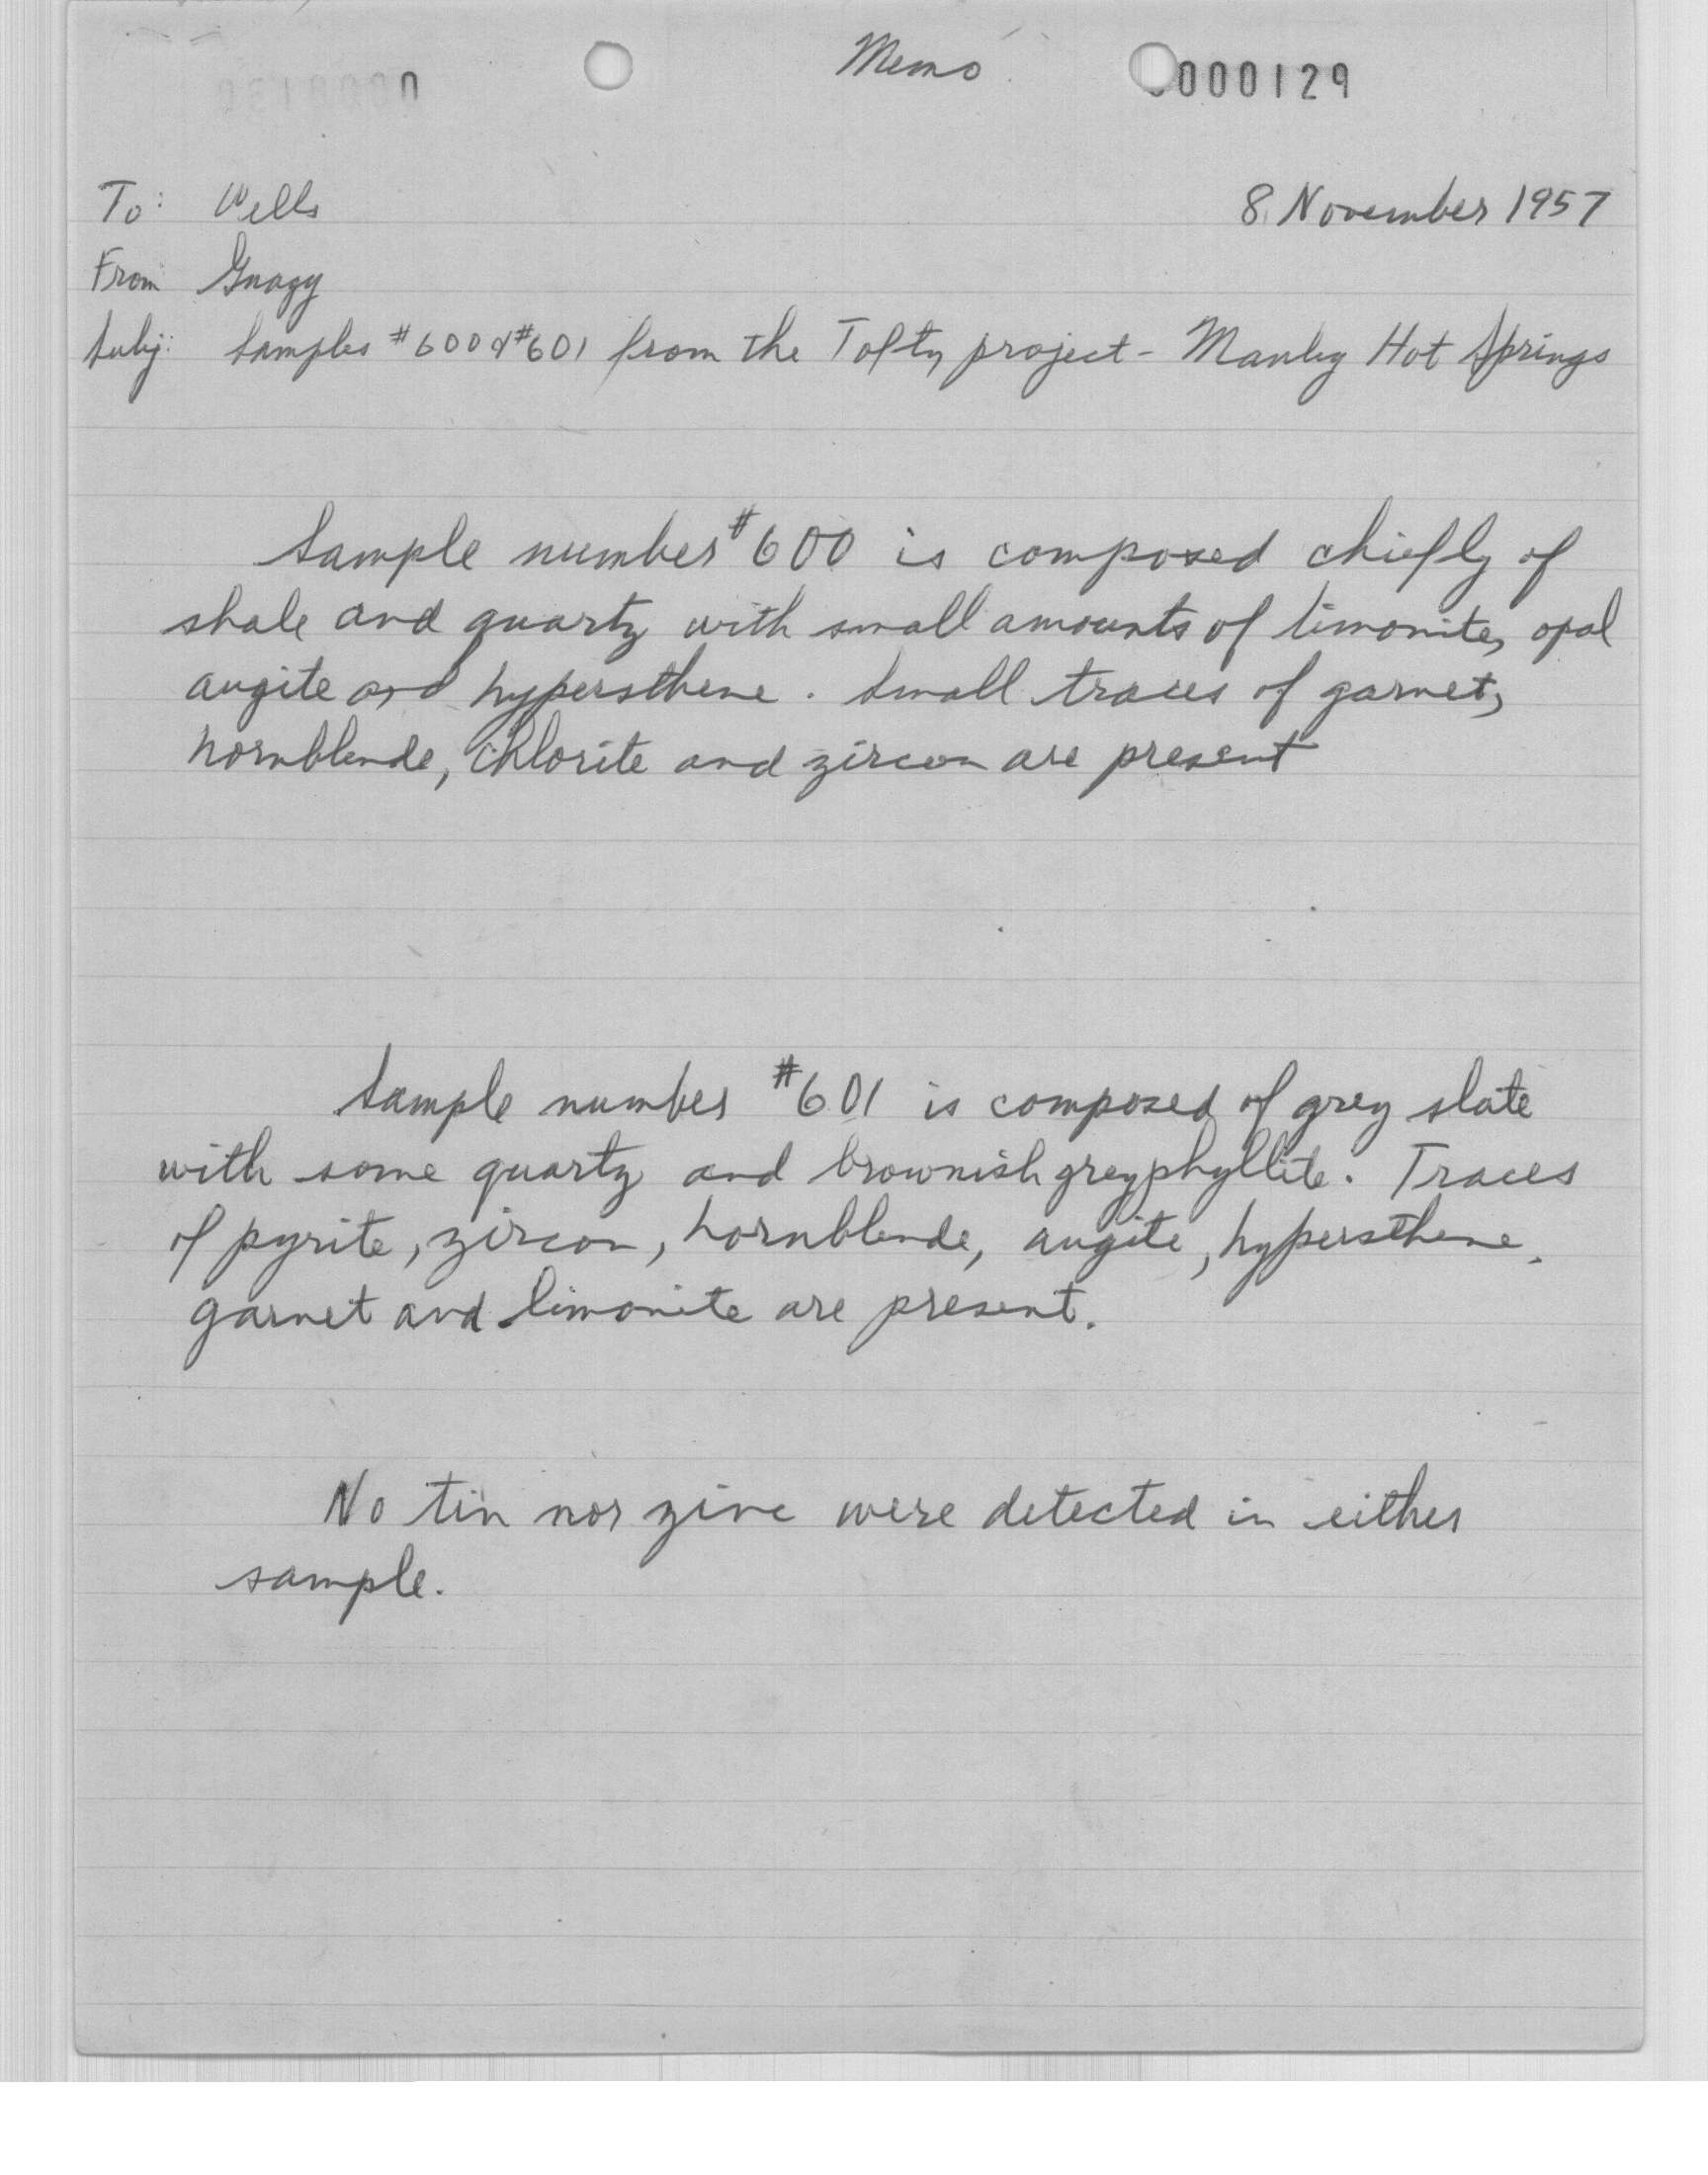 Memo
000129
To: Wells
8 November 1957
From: Gnagy
Subj: Samples #600 & #601 from the Tofty project - Manley Hot Springs
Sample number #600 is composed chiefly of
shale and quartz with small amounts of limonite, opal
augite and hypersthene. Small traces of garnet,
hornblende, chlorite and zircon are present
Sample number #601 is composed of grey slate
with some quartz and brownish grey phyllite. Traces
of pyrite, zircon, hornblende, augite, hypersthene,
garnet and limonite are present.
No tin nor zinc were detected in either
sample.